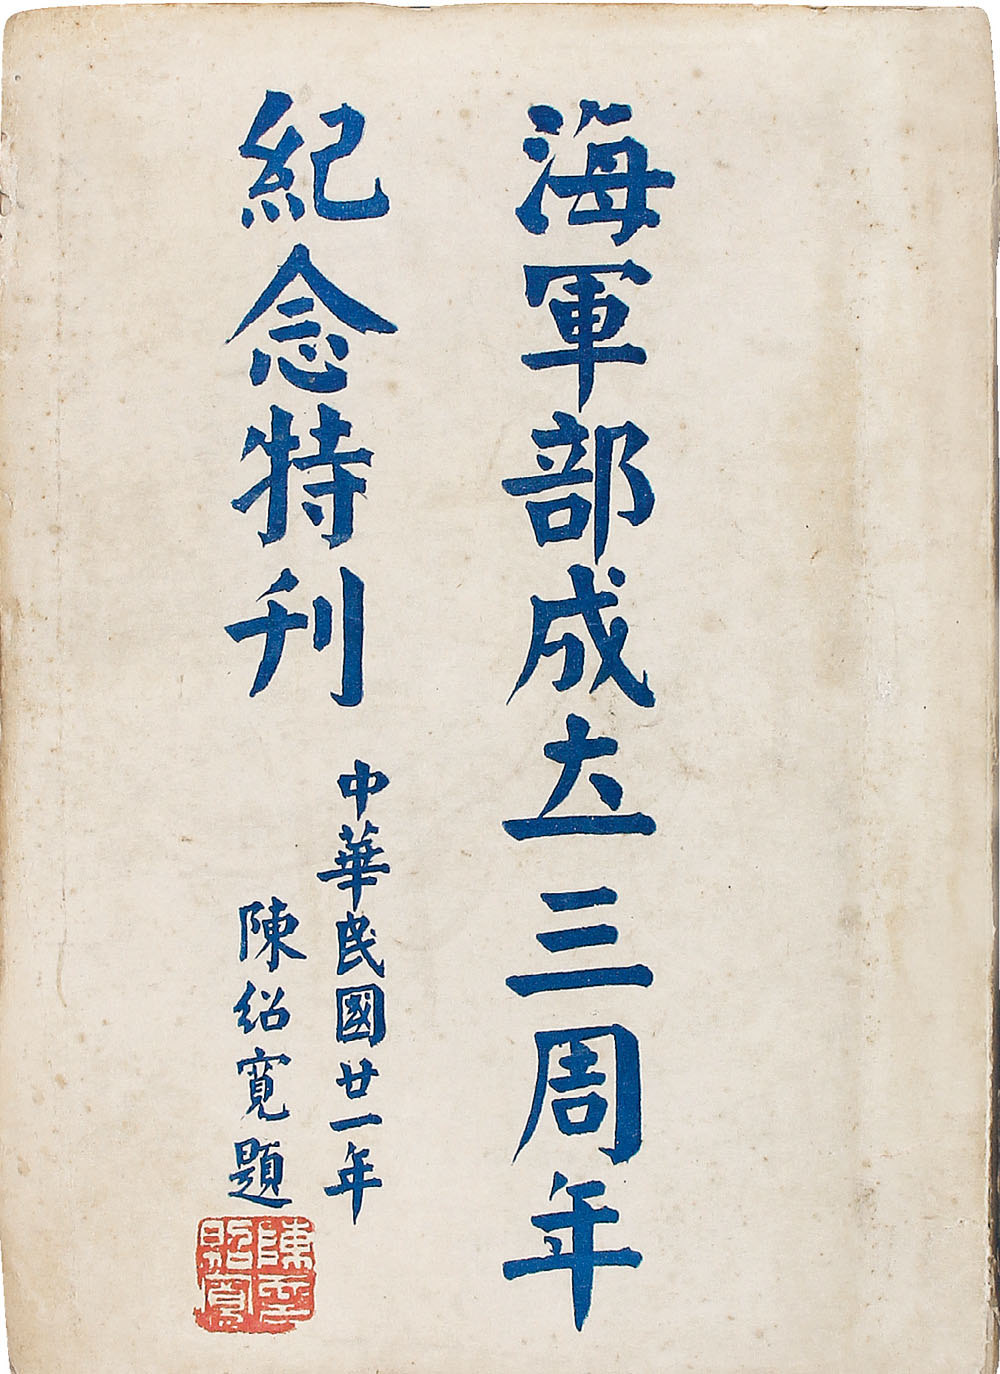 海軍部成立三周年
紀念特刊
中華民國廿一年
陳紹寬題